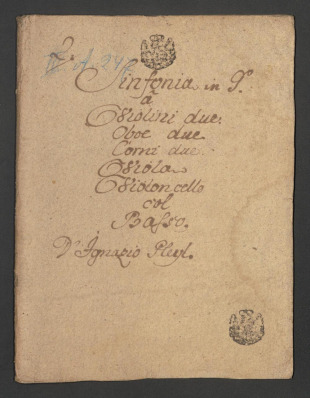 Sinfonia in G.º
à
Violini due.
Oboe due
Corni due.
Viola
Violoncello
col
Basso.
D'Ignazio Pleyl.